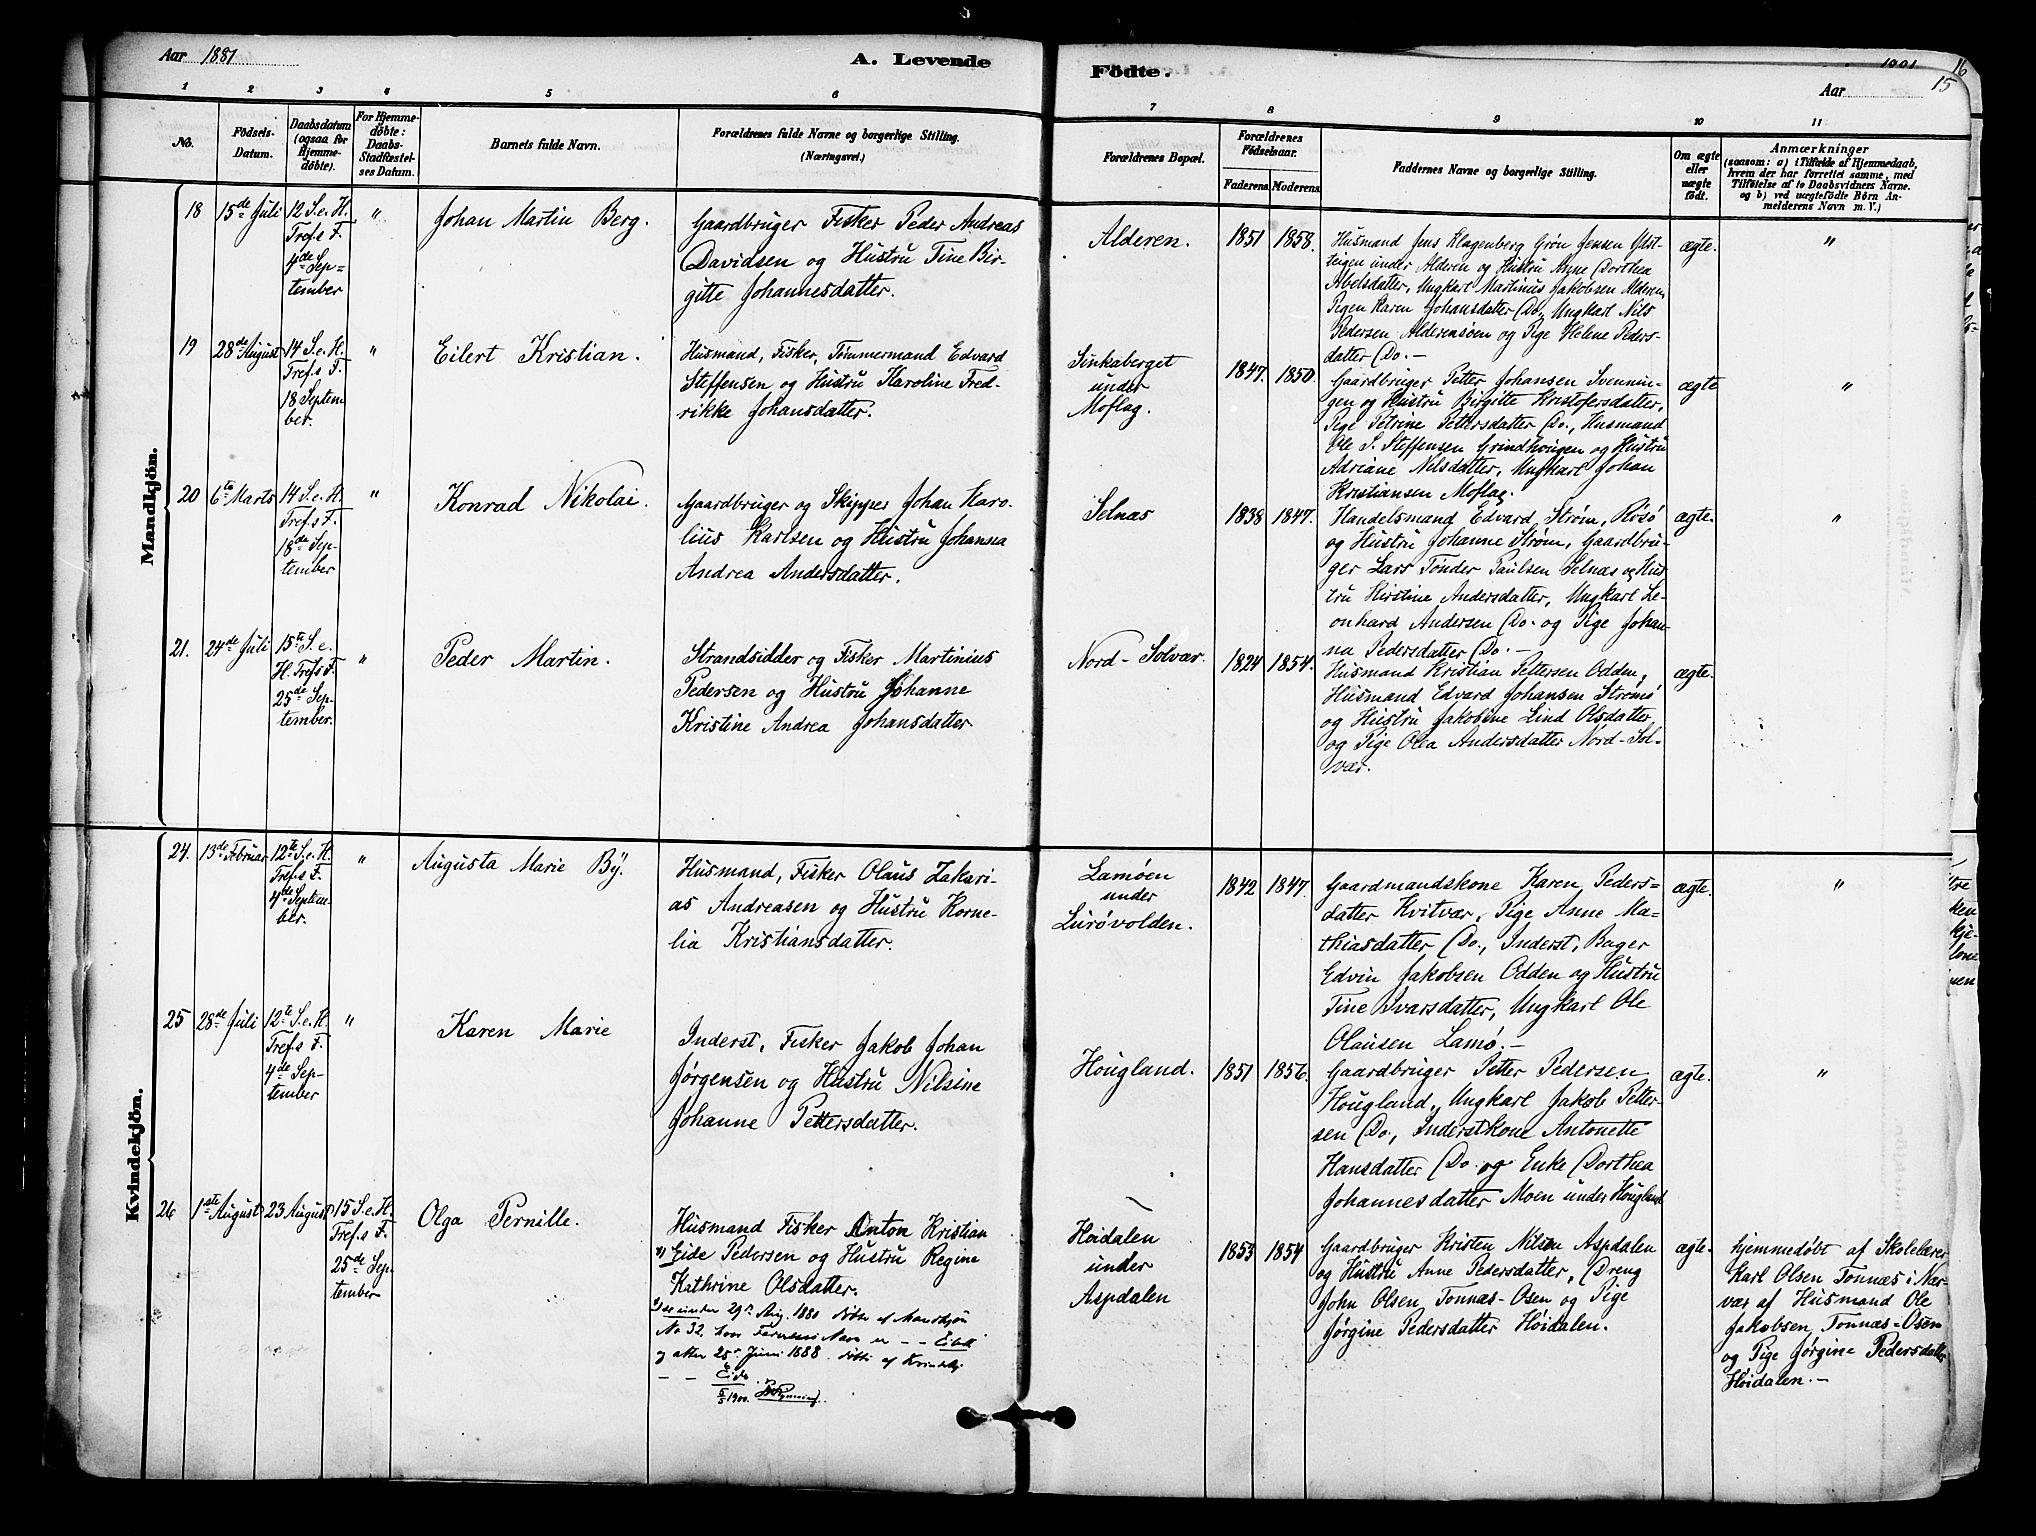 Aar 1881
A. Levende
Födte.
Aar
16
15
1 2 3 4 5 6 7 8 9 10 11
No.
Födsels-
Datum.
Daabsdatum
(ogsaa for
Hjemme-
døbte).
For Hjemme-
døbte:
Daabs-
Stadfæstel-
ses Datum.
Barnets fulde Navn.
Forældrenes fulde Navne og borgerlige Stilling.
(Næringsvei.)
Forældrenes Bopæl.
Forældrenes
Födselsaar.
Faderens. Moderens.
Faddernes Navne og borgerlige Stilling.
Om ægte
eller
uægte
födt.
Anmærkninger
(saasom: a) i Tilfælde af Hjemmedaab,
hvem der har forrettet samme, med
Tilføielse af to Daabsvidners Navne.
og b) ved uægtefödte Börn An-
melderens Navn m. V.)
Mandkjön.
18
15de Juli
12 S. e. H.
Tref.s F.
4de Sep-
tember
"
Johan Martin Berg.
Gaardbruger Fisker Peder Andreas
Davidsen og Hustru Tine Bir-
gitte Johannesdatter.
Alderen.
1851 1858.
Husmand Jens Klagenberg Grøn Jensen
teigen under Alderen og Hustru Anne Dorthea
Abelsdatter, Ungkarl Martinus Jakobsen Alderen,
Pigen Karen Johansdatter Do, Ungkarl Nils
Pedersen Alderensøen og Pige Helene Peders-
datter Do. –
ægte.
"
19
28de August
14 S. e. H.
Tref.s F.
18 Septem-
ber.
"
Eilert Kristian.
Husmand, Fisker, Tømmermand Edvard
Steffensen og Hustru Karoline Fred-
rikke Johansdatter.
Sinkaberget
under
Moflag.
1847. 1850.
Gaardbruger Petter Johansen Svennin-
gen og Hustru Birgitte Kristofersdatter,
Pige Petrine Pettersdatter Do., Husmand
Ole S. Steffensen Grindhougen og Hustru
Adriane Nilsdatter, Ungkarl Johan
Kristiansen Moflag.
ægte
"
20
6te Marts
14 S. e. H.
Tref.s F.
18de Sep-
tember
"
Konrad Nikolai.
Gaardbruger og Skipper Johan Karo-
lius Karlsen og Hustru Johanna
Andrea Andersdatter.
Selnæs
1838 1847.
Handelsmand Edvard Strøm, Røsø
og Hustru Johanne Strøm, Gaardbru-
ger Lars Tønder Paulsen Selnæs og Hus-
tru Kirstine Andersdatter, Ungkarl Le-
onhard Andersen Do. og Pige Johan-
na Pedersdatter Do. –
ægte.
"
21.
24de Juli
15te S. e.
H. Tref.s F.
25de Sep-
tember.
"
Peder Martin.
Strandsidder og Fisker Martinius
Pedersen og Hustru Johanne
Kristine Andrea Johansdatter
Nord-Solvær.
1824 1854.
Husmand Kristian Pettersen Odden,
Husmand Edvard Johansen Strømø
og Hustru Jakobine Lind Olsdatter
og Pige Olea Andersdatter Nord-Sol-
vær.
ægte.
Kvindekjön.
24.
13de Februar
12te S. e. H.
Tref.s F.
4de Septem-
ber.
"
Augusta Marie By.
Husmand, Fisker Olaus Zakari-
as Andreasen og Hustru Korne-
lia Kristiansdatter.
Lamøen
under
Lurøvolden.
1842 1847.
Gaardmandskone Karen Peders-
datter Kvitvær, Pige Anne Ma-
thiasdatter Do., Inderst, Bager
Edvin Jakobsen Odden og Hustru
Tine Ivarsdatter, Ungkarl Ole
Olausen Lamø. –
ægte.
"
25
28de Juli
12te S. e. H.
Tref.s F.
4de Sep-
tember
"
Karen Marie
Inderst, Fisker Jakob Johan
Jørgensen og Hustru Nilsine
Johanne Pettersdatter.
Hougland.
1851 1856.
Gaardbruger Petter Pedersen
Hougland, Ungkarl Jakob Petter-
sen Do., Inderstkone Antonette
Hansdatter Do. og Enke Dorthea
Johannesdatter Moen under Hougland
ægte.
"
26
1ste August
23 August
15 S. e. H.
Tref.s F.
25de Sep-
tember
Olga Pernille.
Husmand Fisker Anton Kristian
Eide Pedersen og Hustru Regine
Kathrine Olsdatter.
under 29de Aug. 1880 døbte af Mandkjøn
No 32, hvor Faderens Navn er – –
og atter 25de Juni 1888 døbte af Kvindekj.
– – Eide
5/5 1900.
Høidalen
under
Aspdalen
1853 1854
Gaardbruger Kristen Nilsen Aspdalen
og Hustru Anne Pedersdatter, Dreng
John Olsen Tonnæs-Osen og Pige
Jørgine Pedersdatter Høidalen.
ægte.
hjemmedøbt af Skolelærer
Karl Olsen Tonnæs i Nær-
vær af Husmand Ole
Jakobsen, Tonnæs-Osen
og Pige Jørgine Pedersdatter
Høidalen. –